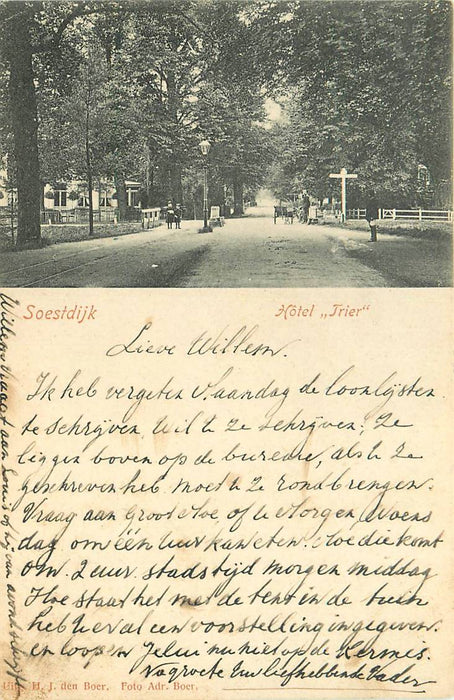 Soestdijk
Hôtel „Trier"
Lieve Willem.
Ik heb vergeten S.aandag de loonlijsten
te schrijven wil U ze schrijven; Ze
liggen boven op de bureau, als U ze
geschreven heb moet U ze rondbrengen.
Vraag aan Groot Moe of U Morgen, Woens
dag om één uur kan eten. Moedie komt
om 2 uur stadstijd morgen middag
Hoe staat het met de tent in de tuin
heb U er al een voorstelling in gegeven.
en loopen Jelui nu niet op de Kermis.
Na groete Uw liefhebbende Vader
Willem vraagt aan Louis of hij van avond
Uitg. H. J. den Boer. Foto Adr. Boer.